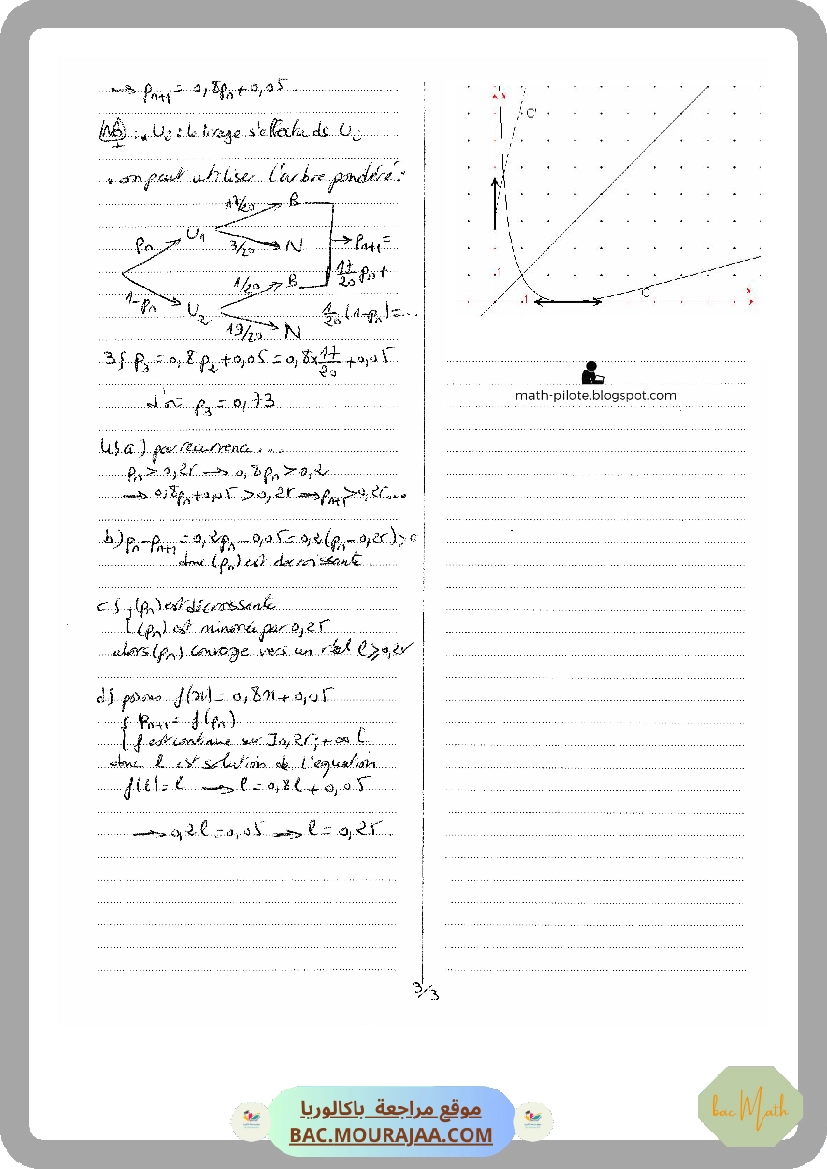 → pₙ₊₁ = 0,8pₙ + 0,05
NB : • Uᵢ : le tirage s'effectue ds Uᵢ
• on peut utiliser l'arbre pondéré :
17/20 B
pₙ U₁ 3/20 N → pₙ₊₁ =
17/20 pₙ +
1-pₙ U₂ 1/20 B
1/20 (1-pₙ) = ...
19/20 N
3) p₃ = 0,8p₂ + 0,05 = 0,8 × 17/20 + 0,05
d'où p₃ = 0,73
4) a) par récurrence ...
pₙ > 0,25 → 0,8pₙ > 0,2
→ 0,8pₙ + 0,05 > 0,25 → pₙ₊₁ > 0,25 ...
b) pₙ - pₙ₊₁ = 0,2pₙ - 0,05 = 0,2(pₙ - 0,25) > 0
donc (pₙ) est décroissante
c) { (pₙ) est décroissante
(pₙ) est minorée par 0,25
alors (pₙ) converge vers un réel l ⩾ 0,25
d) posons f(x) = 0,8x + 0,05
{ pₙ₊₁ = f(pₙ)
f est continue sur ]0,25 ; +∞[
donc l est solution de l'equation
f(l) = l → l = 0,8l + 0,05
→ 0,2l = 0,05 → l = 0,25
C'
1
1
C
math-pilote.blogspot.com
3/3
موقع مراجعة باكالوريا
BAC.MOURAJAA.COM
bac Math